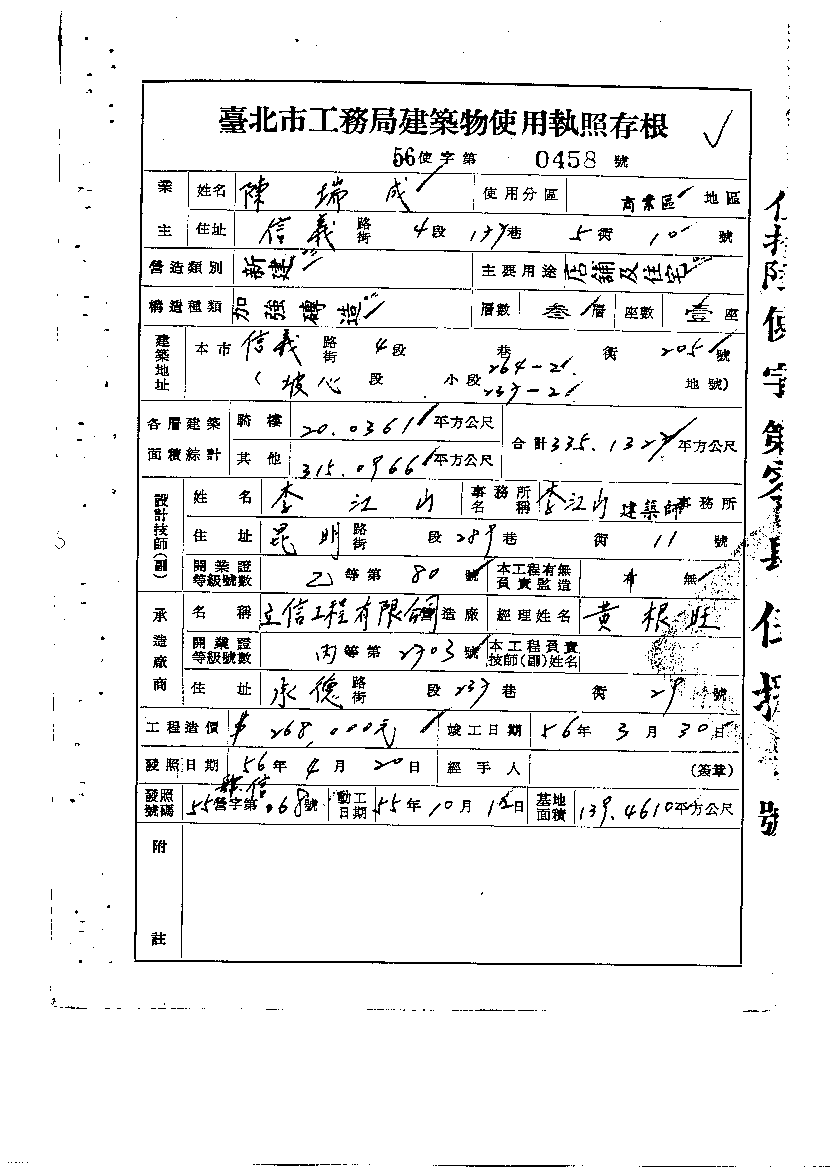 臺北市工務局建築物使用執照存根
56使字第 0458 號
業主 姓名 陳瑞成 使用分區 商業區 地區
住址 信義路街 4段 137巷 5衖 10號
營造類別 新建 主要用途 店舖及住宅
構造種類 加強磚造 層數 叁層 座數 壹座
建築地址 本市 信義路街 4段 巷 衖 205號
(坡心段 小段 264-21 237-21 地號)
各層建築面積綜計 騎樓 20.0361平方公尺 合計335.1327平方公尺
其他 315.0966平方公尺
設計技師(副) 姓名 李江山 事務所名稱 李江山建築師事務所
住址 昆明路街 段 289巷 衖 11號
開業證等級號數 乙等第80號 本工程有無負責監造 有 無
承造廠商 名稱 立信工程有限公司 營造廠 經理姓名 黃根旺
開業證等級號數 丙等第2703號 本工程負責技師(副)姓名
住址 承德路街 段 237巷 衖 29號
工程造價 $268,000元 竣工日期 56年3月30日
發照日期 56年4月20日 經手人 (簽章)
發照號碼 55營字第 68號 動工日期 55年10月15日 基地面積 139.4610平方公尺
附註